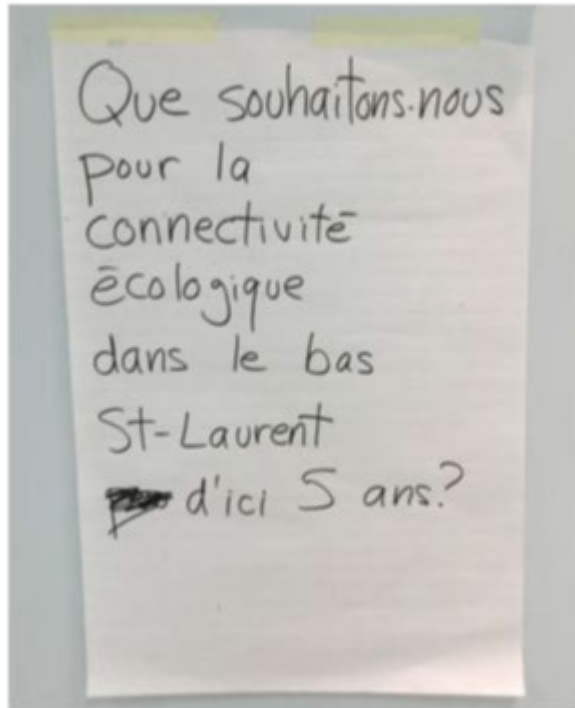 Que souhaitons-nous
pour la
connectivité
écologique
dans le bas
St-Laurent
d'ici 5 ans?